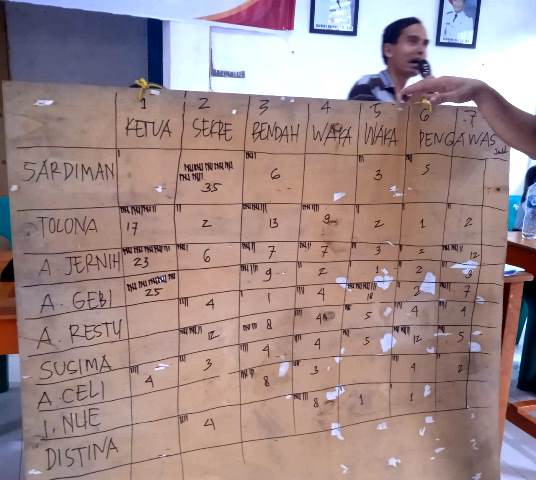 1 2 3 4 5 6 7
KETUA SEKRE BENDAH WAKA WAKA PENGAWAS
SARDIMAN 35 6 3 5
TOLONA 17 2 13 9 2 1 2
A JERNIH 23 6 7 7 3 2 12
A. GEBI 25 9 2 1 2 9
A. RESTU 4 1 4 18 3 7
SUSIMA 12 8 4 5 4 4
A. CELI 4 3 4 4 5 12 5
J. NUE 8 3 4 2
DISTINA 4 8 1 1